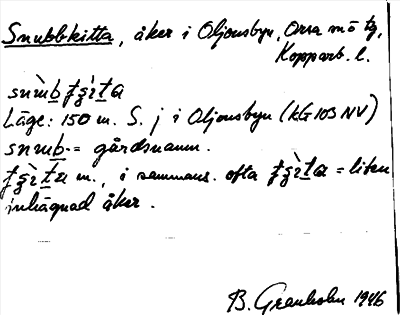 Snubbkitta, åker i Oljonsbyn, Orsa sn tg,
Kopparb. l.
Läge: 150 m. S. j i Oljonsbyn (KG 103 NV)
= gårdsnamn.
m., i sammans. ofta = liten
inhägnad åker.
B. Granholm 1946